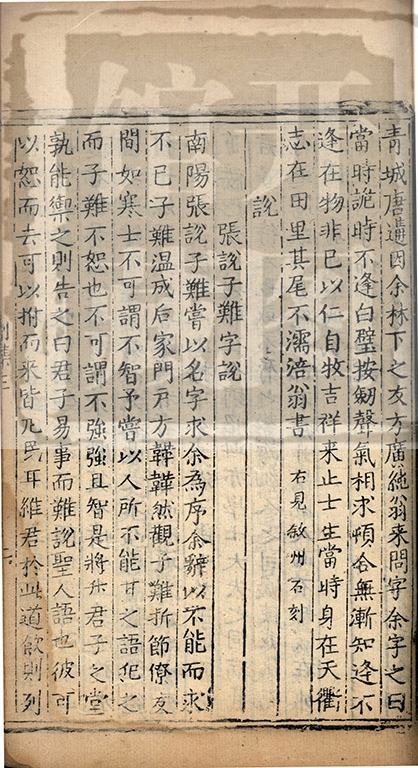 青城唐通因余林下之友方廣鏓翁来問字余字之曰
當時詭時不逢白璧按劒聲氣相求頓合無漸知逢不
逢在物非已以仁自牧吉祥来止士生當時身在天衢
志在田里其尾不濡涪翁書 右見敘州石刻
說
張說子難字說
南陽張說子難嘗以名字求余為序余辭以不能而求
不已子難温成后家門戶方韡韡然觀子難折節僚友
間如寒士不可謂不智予嘗以人所不能甘之語犯之
而子難不怒也不可謂不強強且智是將升君子之堂
孰能禦之則告之曰君子易事而難說聖人語也彼可
以怒而去可以拊而来皆凡民耳維君於此道飲則列